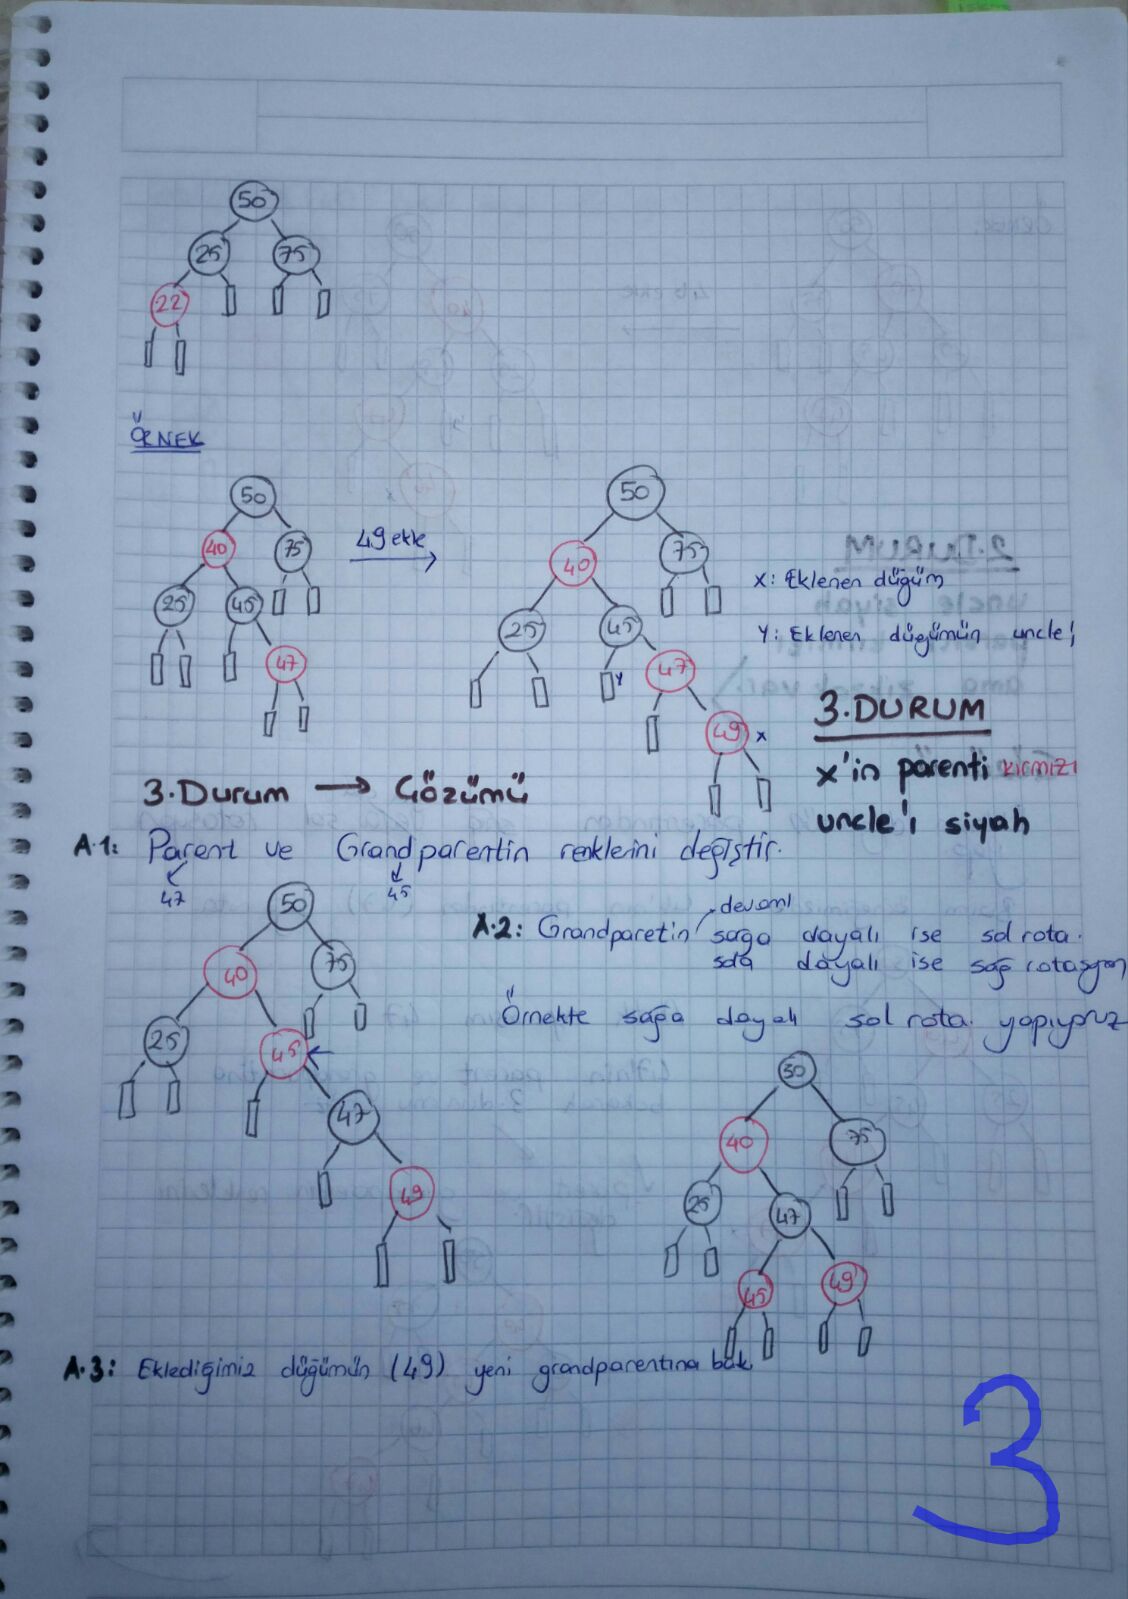 50
25 75
22
ÖRNEK
50
40 75
25 45
47
49 ekle
50
40 75
25 45
y 47
49 x
x: Eklenen düğüm
y: Eklenen düğümün uncle'ı
3.DURUM
x'in parenti kırmızı
uncle'ı siyah
3.Durum → Çözümü
A.1: Parent ve Grandparentin renklerini değiştir.
47 45
50
40 75
25 45
47
49
A.2: Grandparetin devamı
sağa dayalı ise sol rota.
sola dayalı ise sağ rotasyon
Örnekte sağa dayalı sol rota. yapıyoruz
50
40 75
25 47
45 49
A.3: Eklediğimiz düğümün (49) yeni grandparentına bak
3